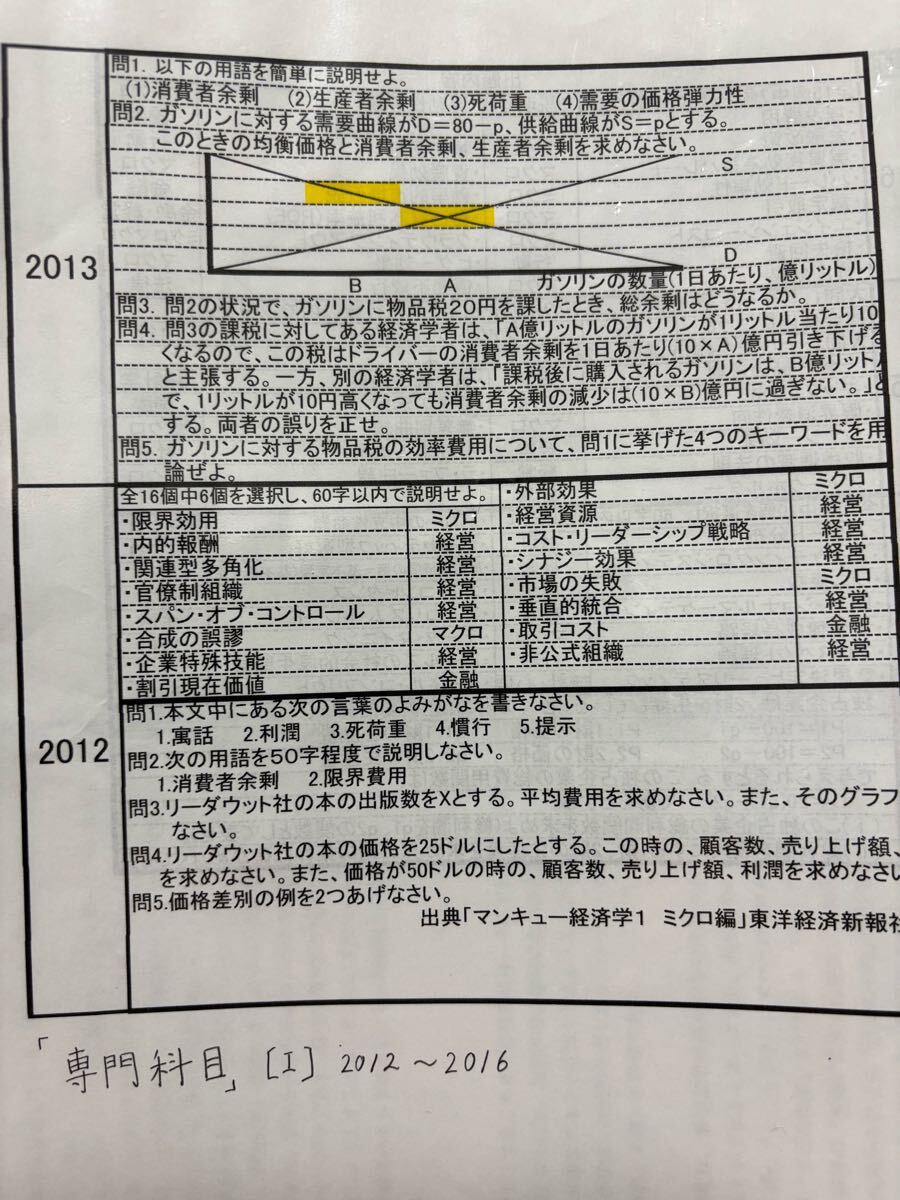 2013
問1. 以下の用語を簡単に説明せよ。
(1)消費者余剰 (2)生産者余剰 (3)死荷重 (4)需要の価格弾力性
問2. ガソリンに対する需要曲線がD=80-p、供給曲線がS=pとする。
このときの均衡価格と消費者余剰、生産者余剰を求めなさい。
S
D
B A ガソリンの数量(1日あたり、億リットル)
問3. 問2の状況で、ガソリンに物品税20円を課したとき、総余剰はどうなるか。
問4. 問3の課税に対してある経済学者は、「A億リットルのガソリンが1リットル当たり10
くなるので、この税はドライバーの消費者余剰を1日あたり(10×A)億円引き下げる
と主張する。一方、別の経済学者は、「課税後に購入されるガソリンは、B億リット
で、1リットルが10円高くなっても消費者余剰の減少は(10×B)億円に過ぎない。」と
する。両者の誤りを正せ。
問5. ガソリンに対する物品税の効率費用について、問1に挙げた4つのキーワードを用
論ぜよ。
2012
全16個中6個を選択し、60字以内で説明せよ。
・限界効用 ミクロ
・内的報酬 経営
・関連型多角化 経営
・官僚制組織 経営
・スパン・オブ・コントロール 経営
・合成の誤謬 マクロ
・企業特殊技能 経営
・割引現在価値 金融
・外部効果 ミクロ
・経営資源 経営
・コスト・リーダーシップ戦略 経営
・シナジー効果 経営
・市場の失敗 ミクロ
・垂直的統合 経営
・取引コスト 金融
・非公式組織 経営
問1.本文中にある次の言葉のよみがなを書きなさい。
1.寓話 2.利潤 3.死荷重 4.慣行 5.提示
問2.次の用語を50字程度で説明しなさい。
1.消費者余剰 2.限界費用
問3.リーダウット社の本の出版数をXとする。平均費用を求めなさい。また、そのグラフ
なさい。
問4.リーダウット社の本の価格を25ドルにしたとする。この時の、顧客数、売り上げ額、
を求めなさい。また、価格が50ドルの時の、顧客数、売り上げ額、利潤を求めなさい
問5.価格差別の例を2つあげなさい。
出典「マンキュー経済学1 ミクロ編」東洋経済新報社
「専門科目」[I] 2012〜2016